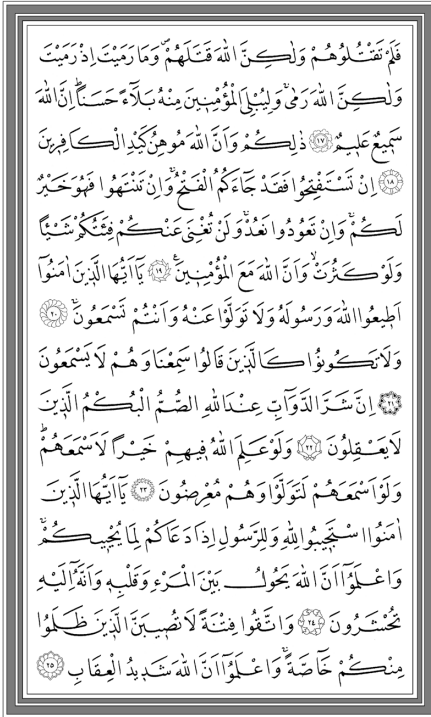 فَلَمْ تَقْتُلُوهُمْ وَلٰكِنَّ اللّٰهَ قَتَلَهُمْۖ وَمَا رَمَيْتَ اِذْ رَمَيْتَ
وَلٰكِنَّ اللّٰهَ رَمٰىۚ وَلِيُبْلِيَ الْمُؤْمِن۪ينَ مِنْهُ بَلَٓاءً حَسَنًاۜ اِنَّ اللّٰهَ
سَم۪يعٌ عَل۪يمٌ ﴿١٧﴾ ذٰلِكُمْ وَاَنَّ اللّٰهَ مُوهِنُ كَيْدِ الْكَافِر۪ينَ
﴿١٨﴾ اِنْ تَسْتَفْتِحُوا فَقَدْ جَٓاءَكُمُ الْفَتْحُۚ وَاِنْ تَنْتَهُوا فَهُوَ خَيْرٌ
لَكُمْۚ وَاِنْ تَعُودُوا نَعُدْۚ وَلَنْ تُغْنِيَ عَنْكُمْ فِئَتُكُمْ شَيْـًٔا
وَلَوْ كَثُرَتْۙ وَاَنَّ اللّٰهَ مَعَ الْمُؤْمِن۪ينَ۟ ﴿١٩﴾ يَٓا اَيُّهَا الَّذ۪ينَ اٰمَنُٓوا
اَط۪يعُوا اللّٰهَ وَرَسُولَهُ وَلَا تَوَلَّوْا عَنْهُ وَاَنْتُمْ تَسْمَعُونَۚ ﴿٢٠﴾
وَلَا تَكُونُوا كَالَّذ۪ينَ قَالُوا سَمِعْنَا وَهُمْ لَا يَسْمَعُونَ
﴿٢١﴾ اِنَّ شَرَّ الدَّوَٓابِّ عِنْدَ اللّٰهِ الصُّمُّ الْبُكْمُ الَّذ۪ينَ
لَا يَعْقِلُونَ ﴿٢٢﴾ وَلَوْ عَلِمَ اللّٰهُ ف۪يهِمْ خَيْرًا لَاَسْمَعَهُمْۜ
وَلَوْ اَسْمَعَهُمْ لَتَوَلَّوْا وَهُمْ مُعْرِضُونَ ﴿٢٣﴾ يَٓا اَيُّهَا الَّذ۪ينَ
اٰمَنُوا اسْتَج۪يبُوا لِلّٰهِ وَلِلرَّسُولِ اِذَا دَعَاكُمْ لِمَا يُحْي۪يكُمْۚ
وَاعْلَمُٓوا اَنَّ اللّٰهَ يَحُولُ بَيْنَ الْمَرْءِ وَقَلْبِه۪ وَاَنَّهُٓ اِلَيْهِ
تُحْشَرُونَ ﴿٢٤﴾ وَاتَّقُوا فِتْنَةً لَا تُص۪يبَنَّ الَّذ۪ينَ ظَلَمُوا
مِنْكُمْ خَٓاصَّةًۚ وَاعْلَمُٓوا اَنَّ اللّٰهَ شَد۪يدُ الْعِقَابِ ﴿٢٥﴾